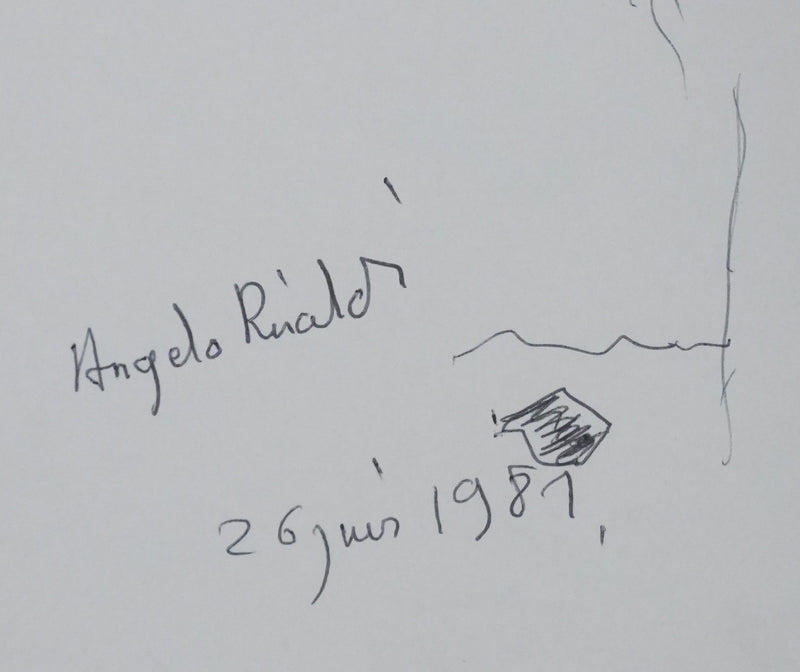 Angelo Rinaldi
26 juin 1981.